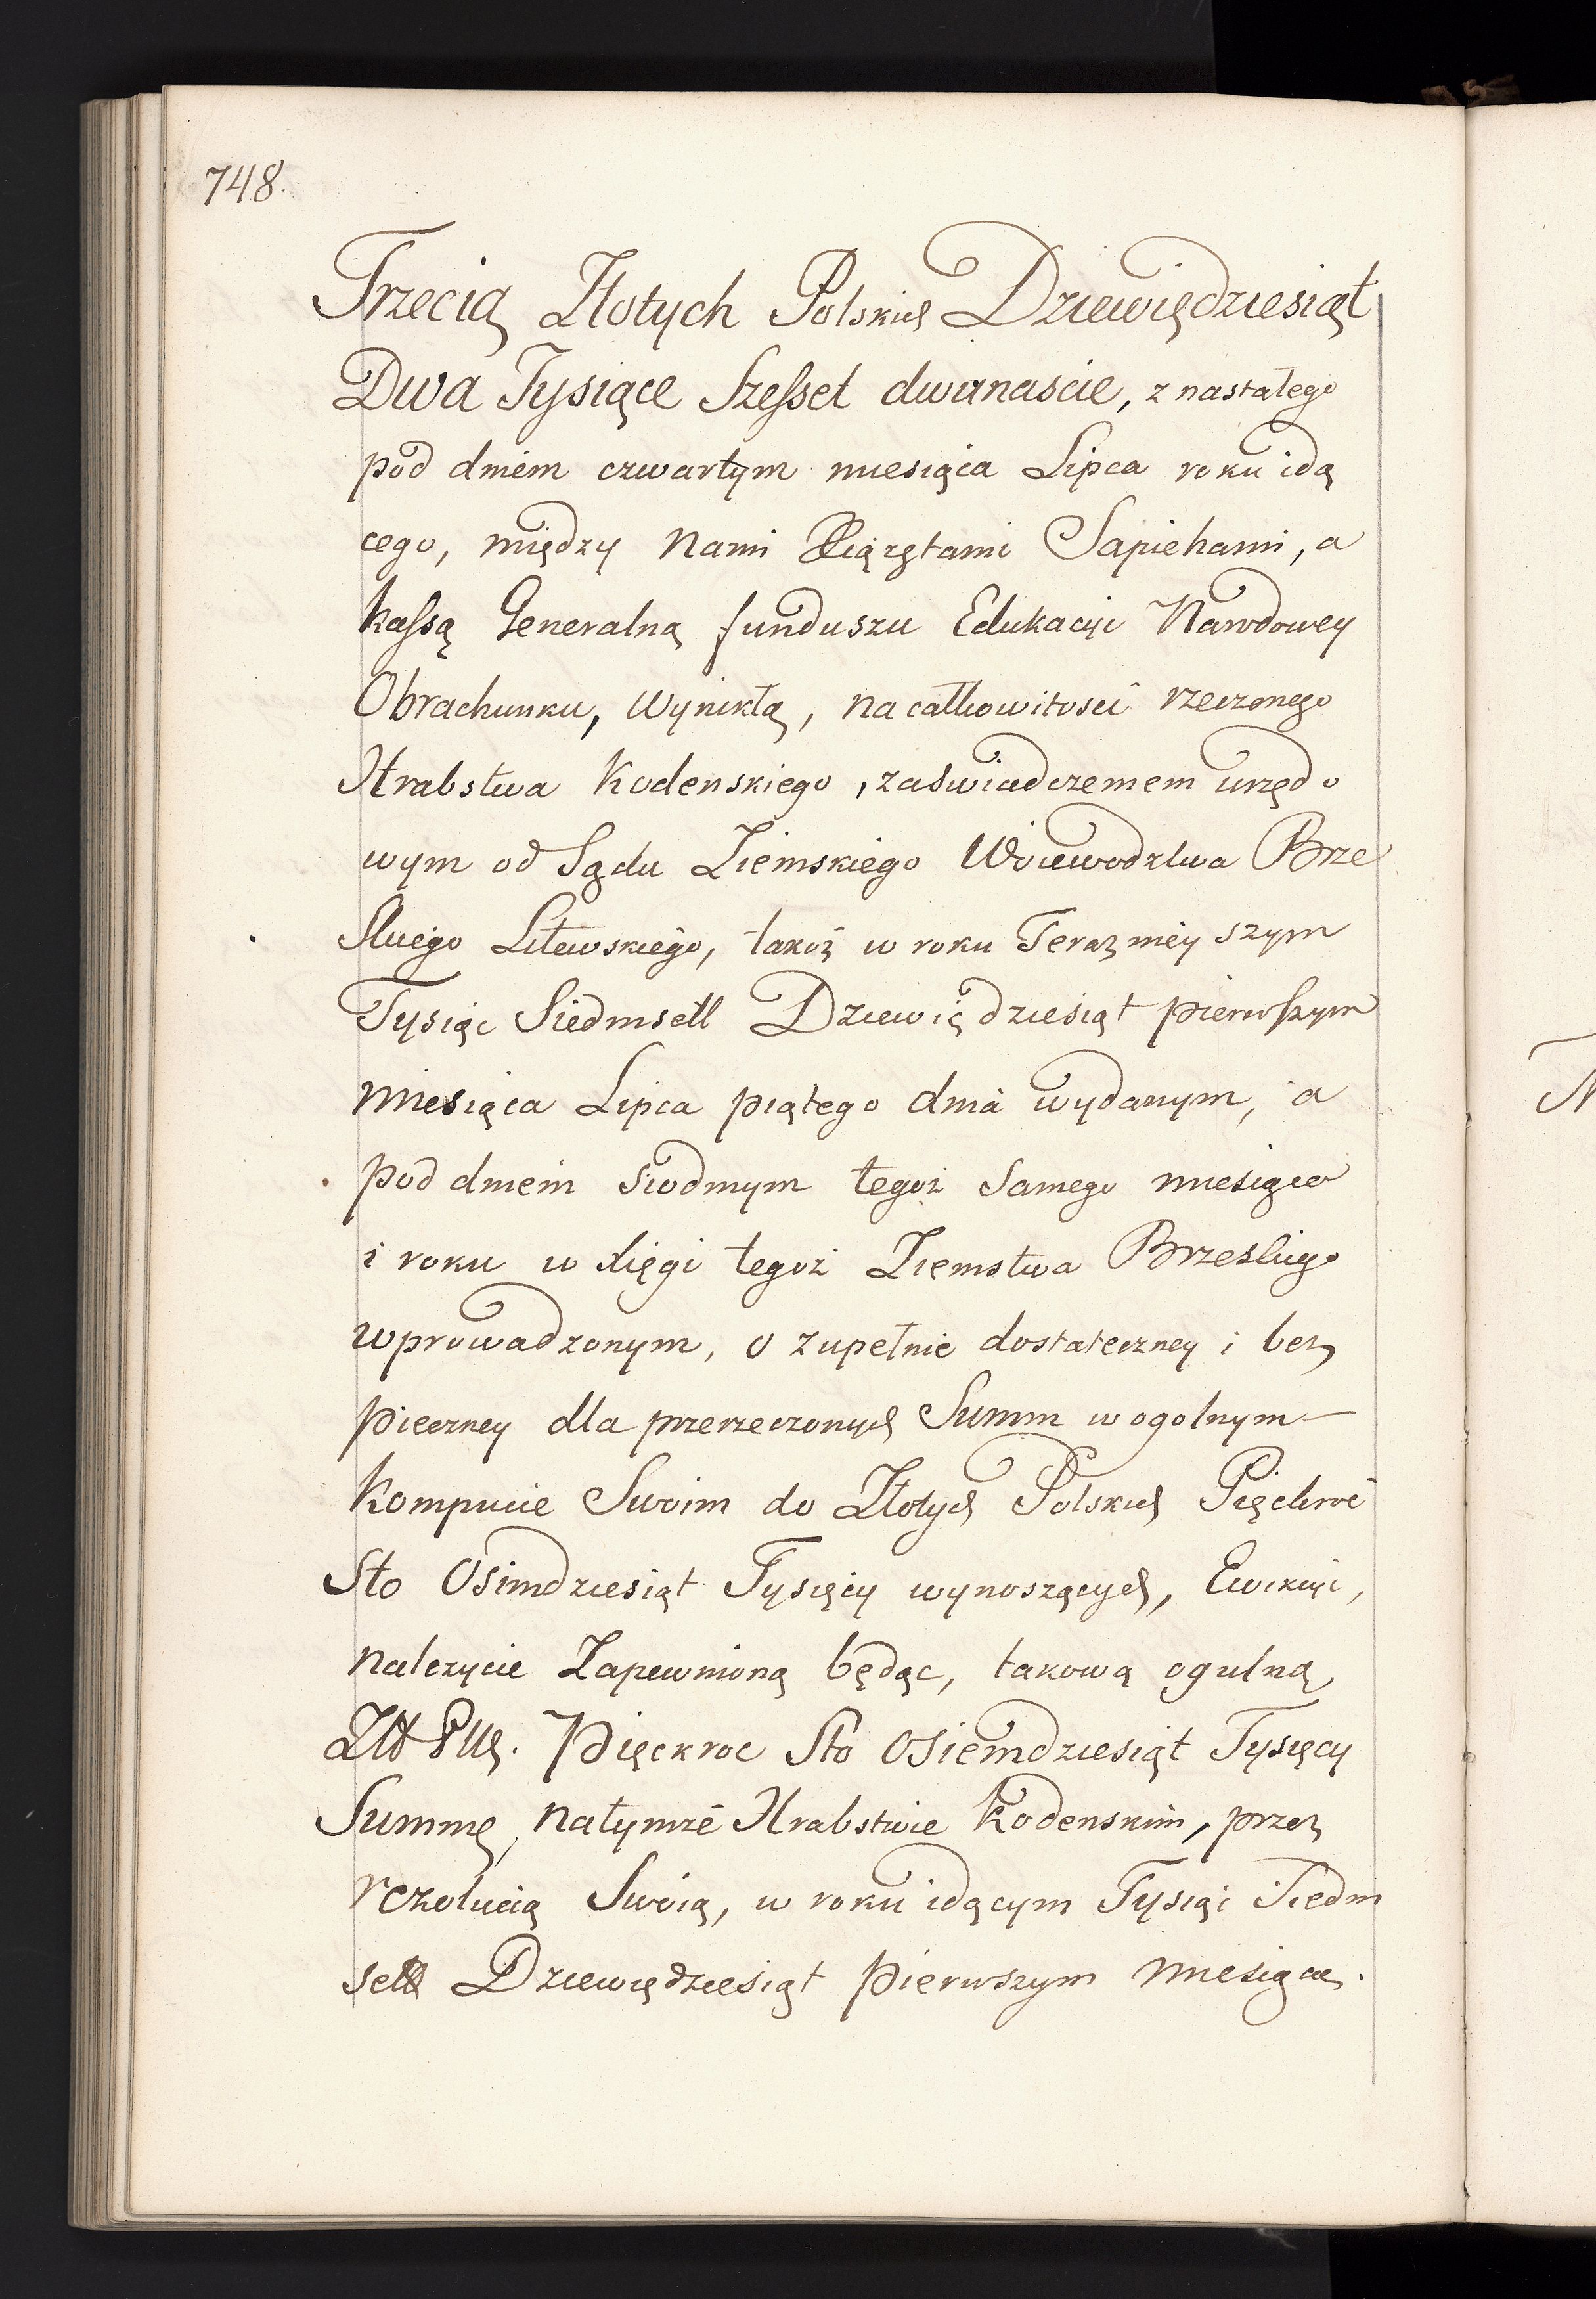 748.
Trzecią Złotych Polskich Dziewięćdziesiąt
Dwa Tysiące Szesset dwanaście, z nastałego
pod dniem czwartym miesiąca Lipca roku idą
cego, między Nami Xiążętami Sapiehami, a
kassą Generalną funduszu Edukacyi Narodowey
Obrachunku, wynikłą, na całkowitości rzeczonego
Hrabstwa Kodenskiego, zaświadczeniem urzędo
wym od Sądu Ziemskiego Woiewodztwa Brze
skiego Litewskiego, takoż w roku Teraznieyszym
Tysiąc Siedmsett Dziewiędziesiąt pierwszym
miesiąca Lipca piątego dnia wydanym, a
pod dniem siodmym tegoż Samego miesiąca
i roku w xięgi tegoż Ziemstwa Brzeskiego
wprowadzonym, o zupełnie dostateczney i bez
pieczney dla przerzeczonych Summ w ogolnym
kompucie Swoim do Złotych Polskich Pięćkroć
Sto Osimdziesiąt Tysięcy wynoszących, Ewikcyi,
należycie Zapewnioną będąc, takową ogulną
Złł Pllch. Pięckroc Sto Osiemdziesiąt Tysięcy
Summę, na tymże Hrabstwie Kodenskim, przez
rezolucią Swoią, w roku idącym Tysiąc Siedm
sett Dziewiędziesiąt Pierwszym miesiąca.
N